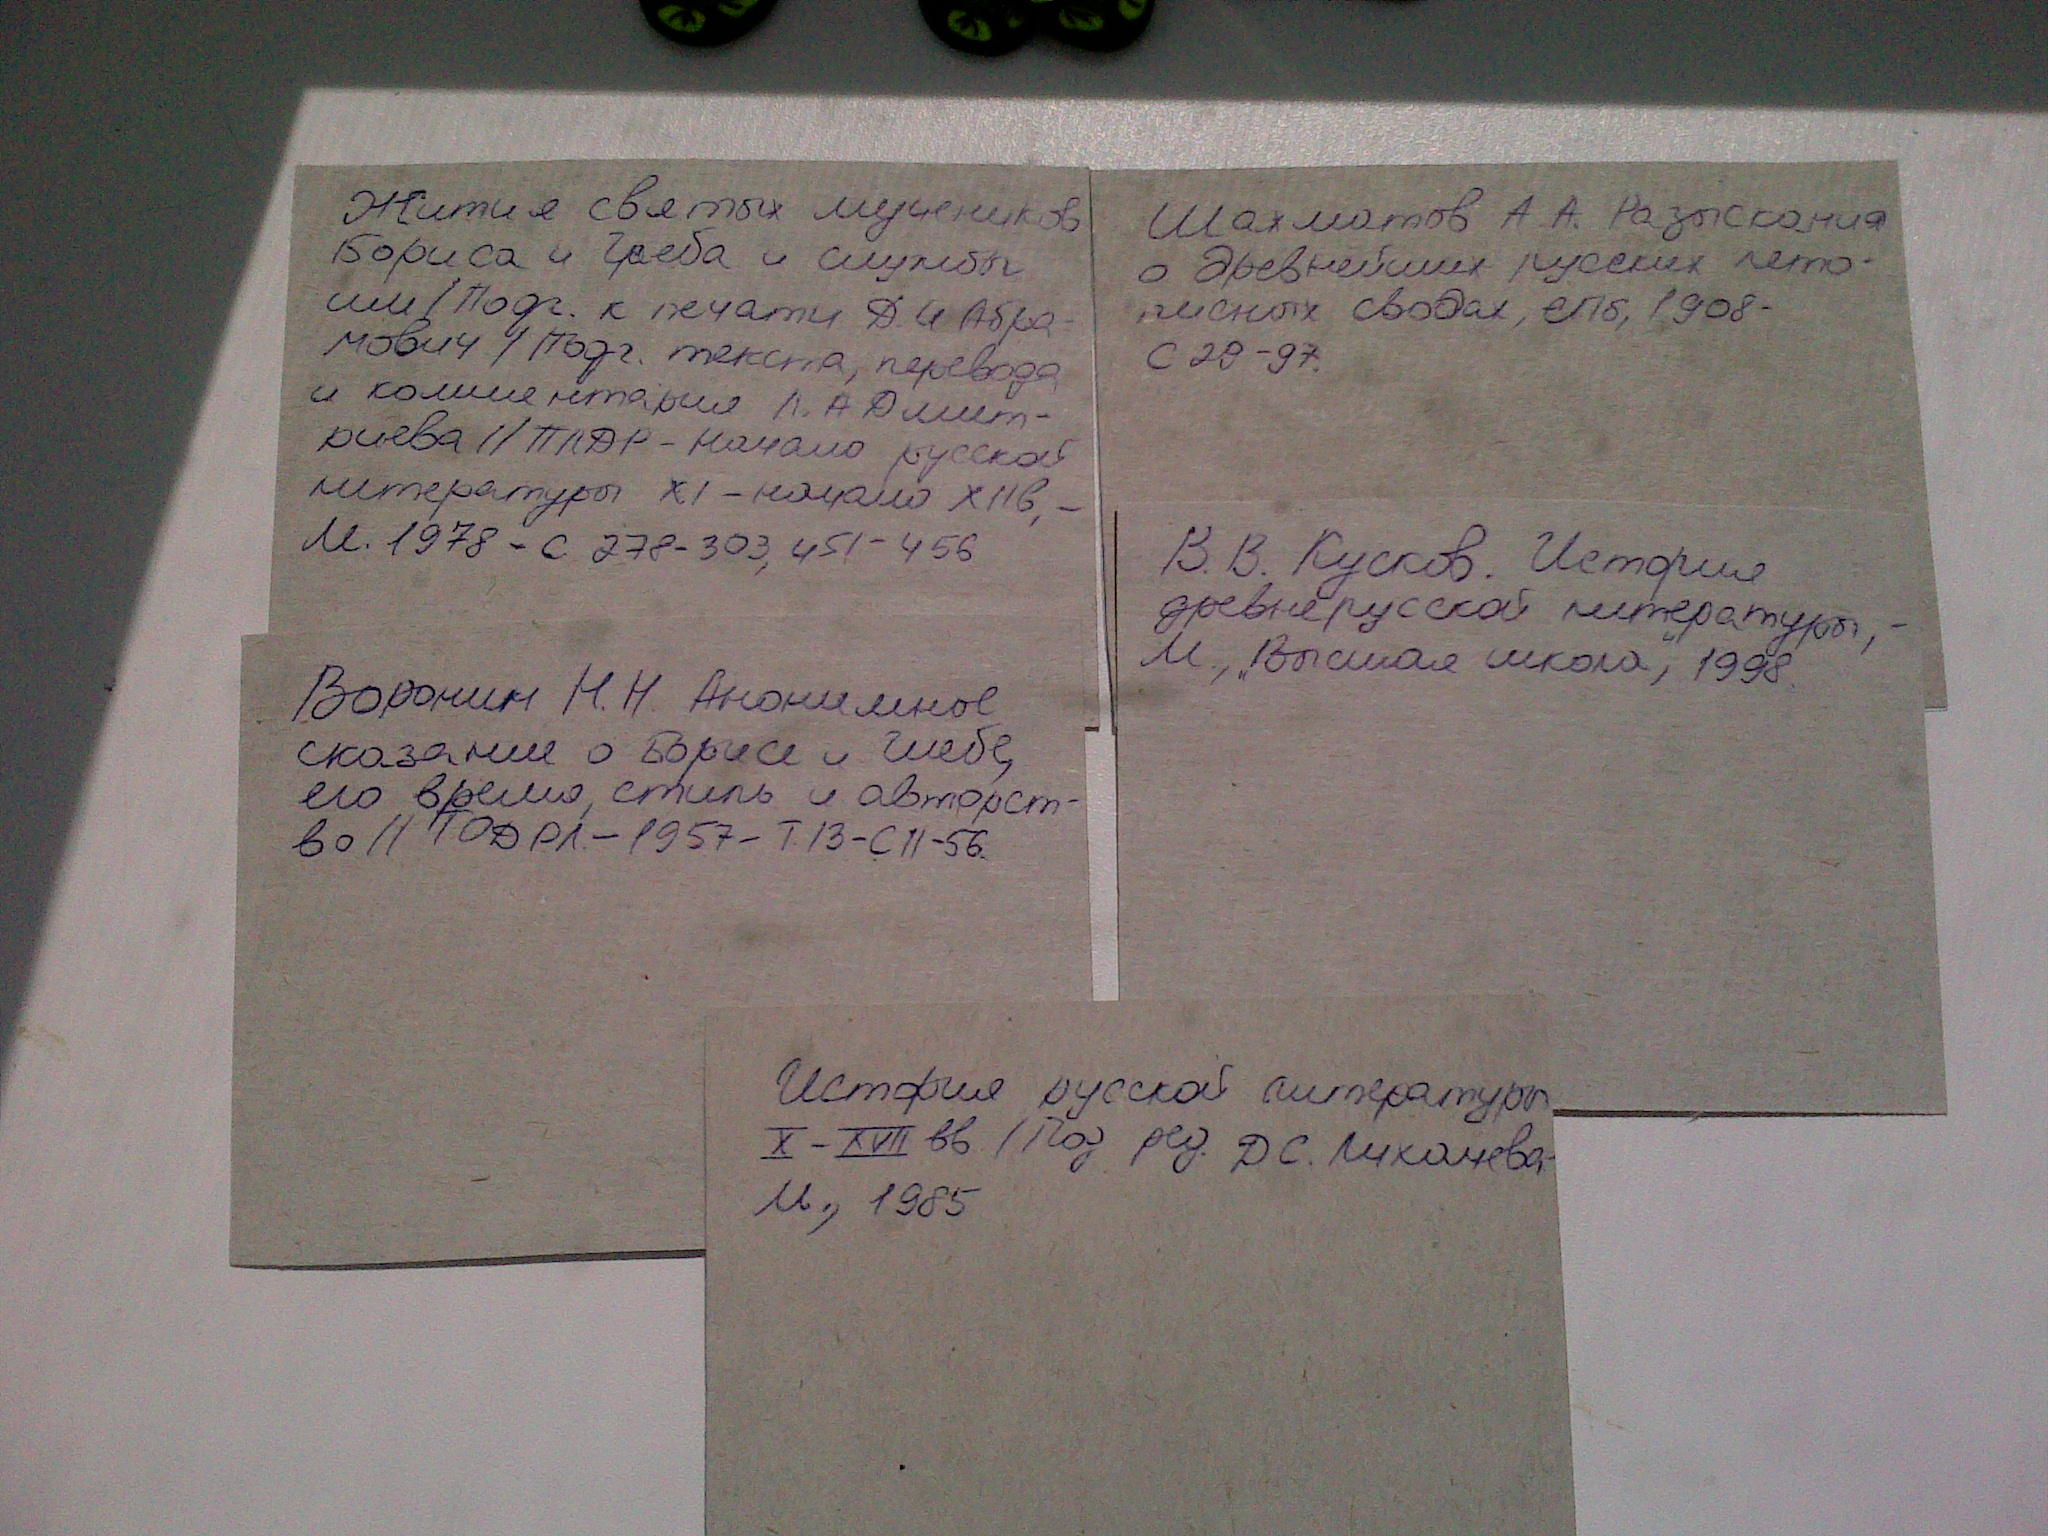 Жития святых мучеников
Бориса и Глеба и службы
им / Подг. к печати Д.И Абра-
мович // Подг. текста, перевода
и комментария Л. А Дмит-
риева // ПЛДР - Начало русской
литературы XI - начало XII в, -
М. 1978 - С 278-303, 451-456
Воронин Н. Н. Анонимное
сказание о Борисе и Глебе,
его время, стиль и авторст-
во // ТОДРЛ. - 1957 - Т. 13 - С 11-56.
Шахматов А А. Разыскания
о древнейших русских лето-
писных сводах, СПб, 1908 -
С 29-97.
В. В. Кусков. История
древнерусской литературы, -
М., „Высшая школа", 1998.
История русской литературы
X - XVII вв / Под ред. Д С. Лихачева-
М., 1985